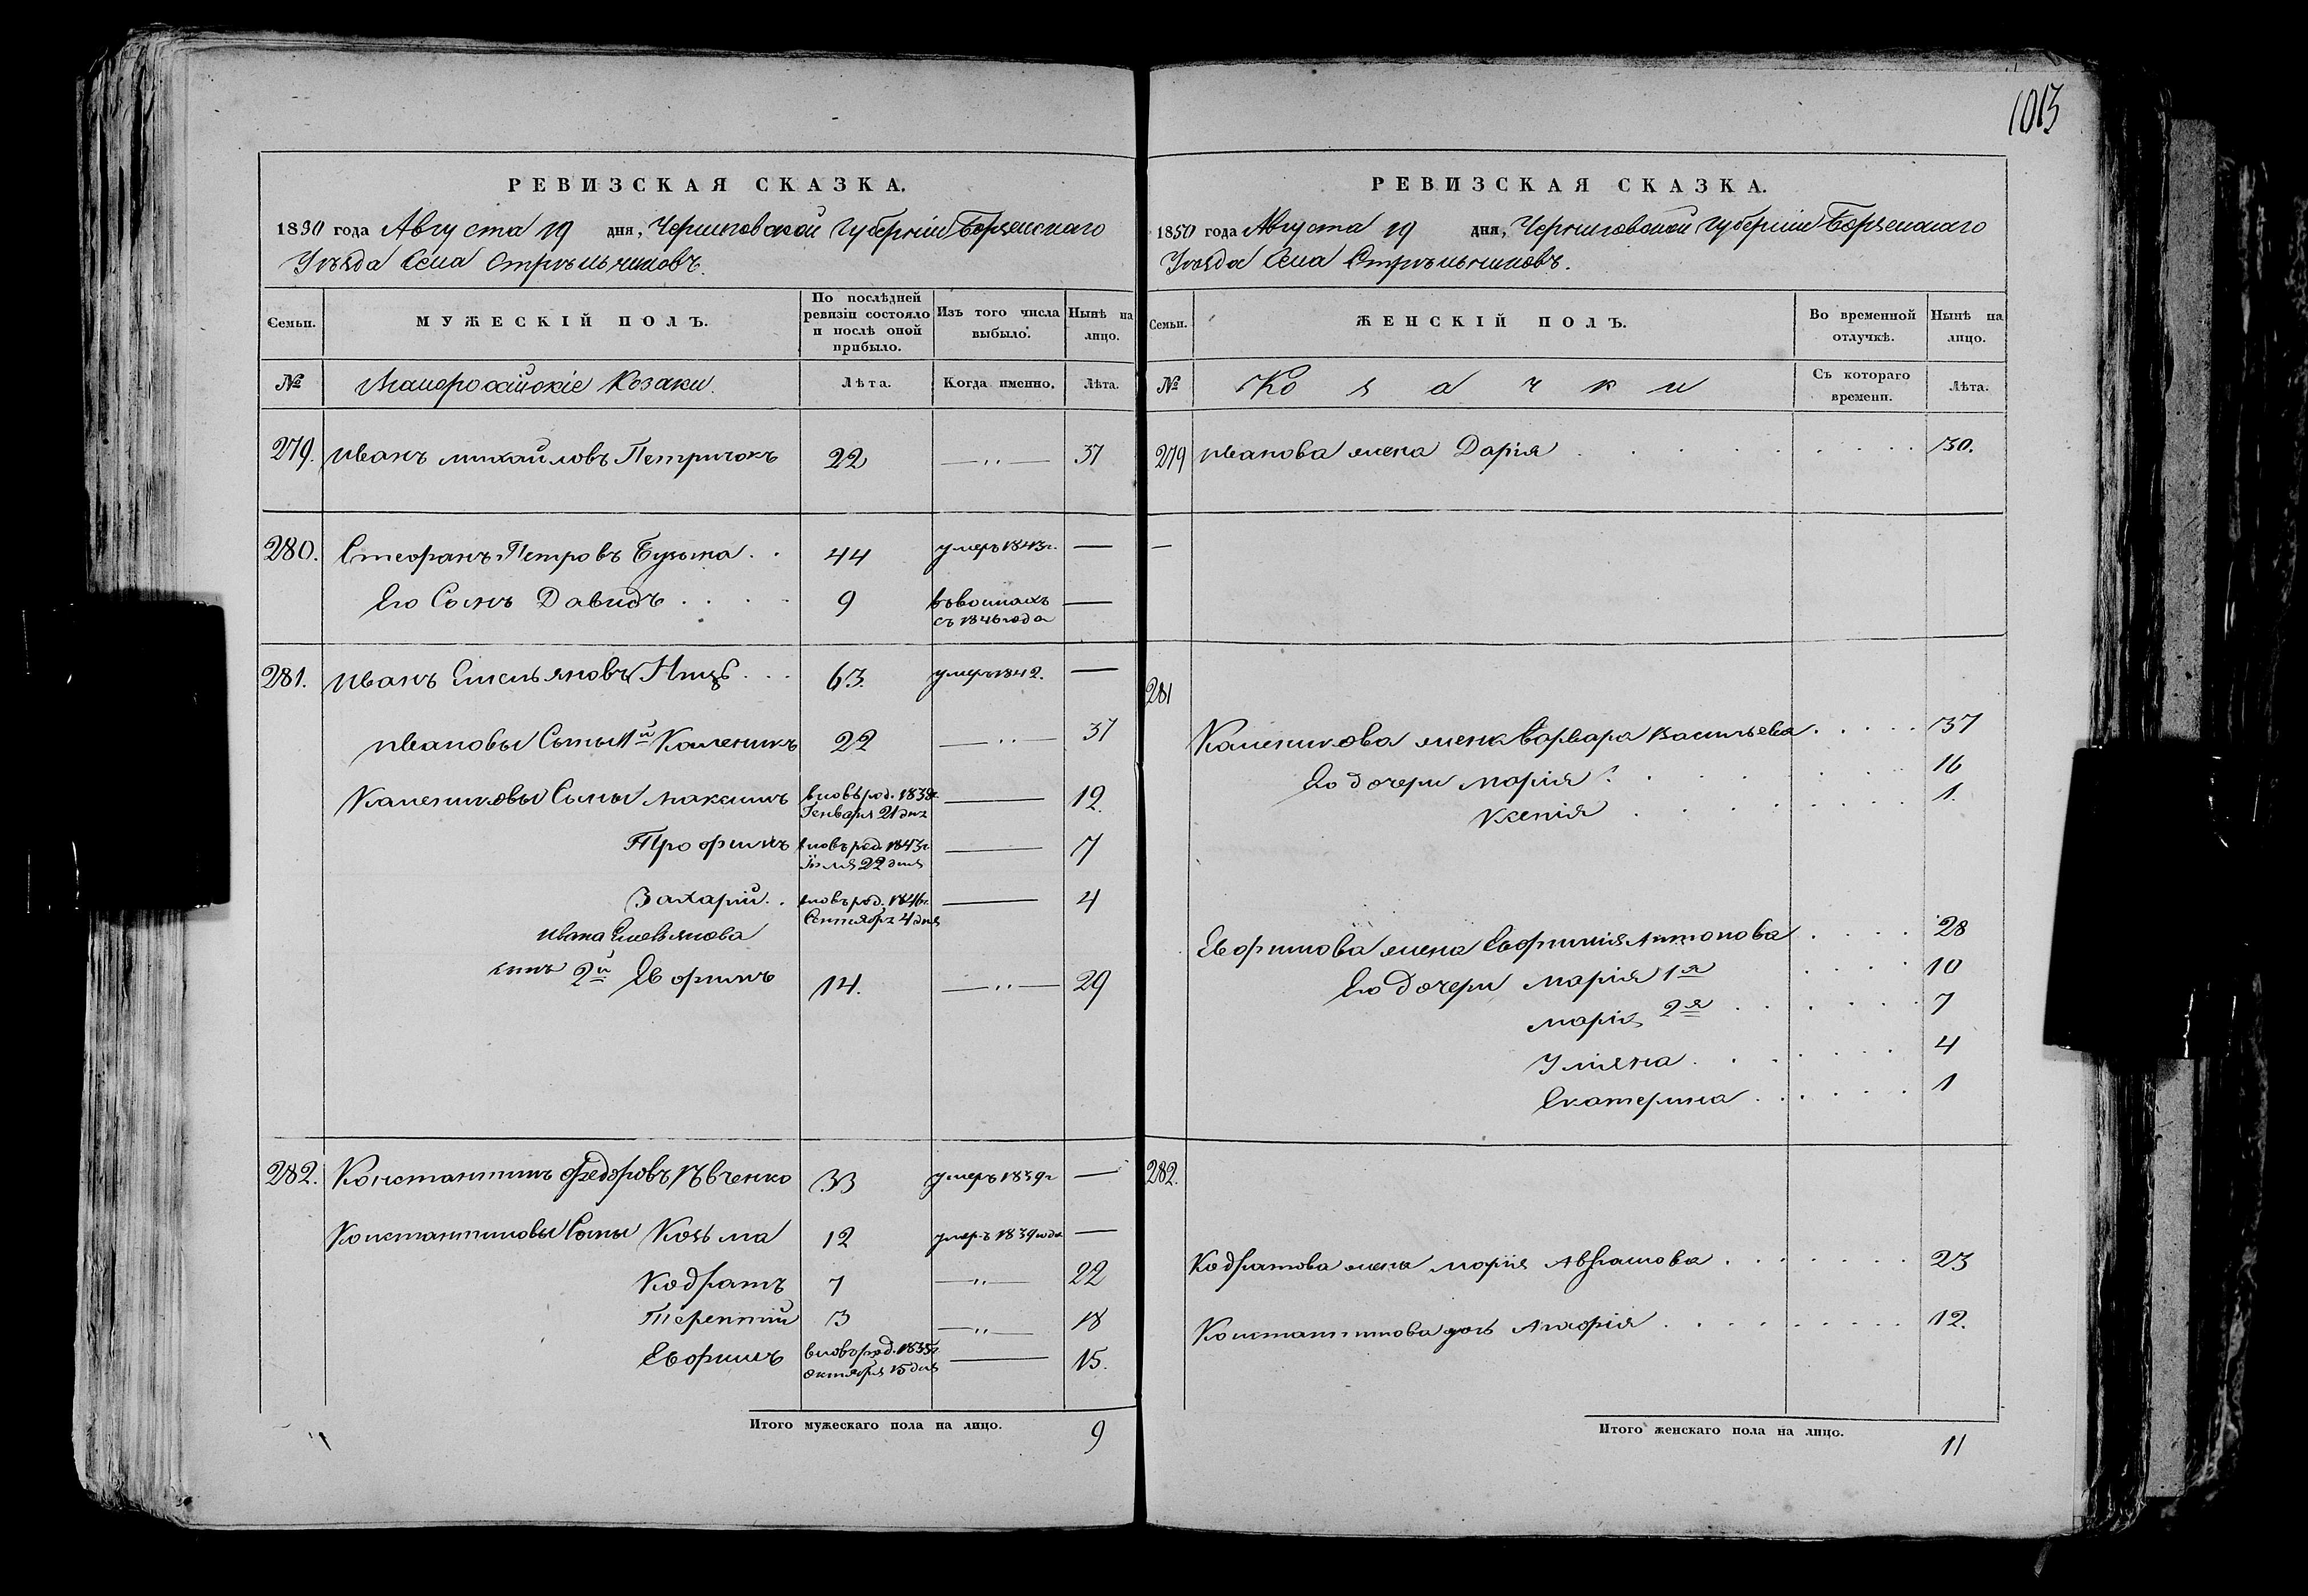 1013
РЕВИЗСКАЯ СКАЗКА.
1850 года Августа 19 дня, Черниговской Губерніи Борзенскаго
Уѣзда Села Стрѣльниковъ.
Семьи.
МУЖЕСКІЙ ПОЛЪ.
По послѣдней ревизіи состояло и послѣ оной прибыло.
Изъ того числа выбыло.
Нынѣ на лицо.
№
Малоросійскіе Козаки.
Лѣта.
Когда именно.
Лѣта.
279. Иванъ Михайловъ 22 —„— 37
280. Стефанъ Петровъ 44 умеръ 1843г. —
Его Сынъ Давидъ 9 —
съ 1846 года
281. Иванъ Емельяновъ 63. умеръ 1842. —
Ивановы Сыны 1й Каленикъ 22 —„— 37
Калениковы Сыны Максимъ вновь род. 1838г. — 12.
Генваря 21 дня
Трофимъ вновь род. 1843г. — 7
Іюля 22 дня
Захарій вновь род. 1846г. — 4
Сентября 4 дня
Ивана Емельянова
сынъ 2й Евфимъ 14. —„— 29
282. Константинъ Федоровъ Ивченко 33 умеръ 1839г —
Константиновы Сыны Козьма 12 умеръ 1839 года —
Кодратъ 7 —„— 22
Терентій 3 —„— 18
Евфимъ вновь род. 1835г. — 15.
Октября 15 дня
Итого мужескаго пола на лицо. 9
РЕВИЗСКАЯ СКАЗКА.
1850 года Августа 19 дня, Черниговской Губерніи Борзенскаго
Уѣзда Села Стрѣльниковъ.
Семьи.
ЖЕНСКІЙ ПОЛЪ.
Во временной отлучкѣ.
Нынѣ на лицо.
№
Козачки
Съ котораго времени.
Лѣта.
279 Иванова жена Дарія 30.
—
281
Каленикова жена Варвара Васильева 37
Его дочери Марія 16
Ксенія 1.
Евфимова жена Евфимія Антонова 28
Его дочери Марія 1я 10
Марія 2я 7
Уліяна 4
Екатерина 1
282.
Кодратова жена Марія Аврамова 23
Константинова дочь Агафія 12.
Итого женскаго пола на лицо. 11